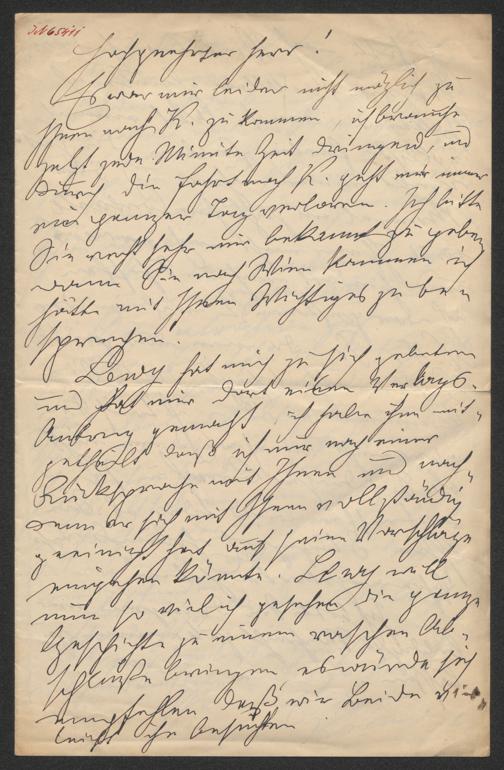 Hochgeehrter Herr!
Es war mir leider nicht möglich zu
Ihnen nach K. zu kommen, ich brauche
jetzt jede Minute Zeit dringend, und
durch die Fahrt nach K. geht mir immer
ein ganzer Tag verloren. Ich bitte
Sie recht sehr mir bekannt zu geben
wann Sie nach Wien kommen ich
hätte mit Ihnen Wichtiges zu be
sprechen!
Lewy hat mich zu sich gebeten
und hat mir dort einen Verlags-
Antrag gemacht, ich habe ihm mit-
getheilt daß ich nur nach einer
Rücksprache mit Ihnen und nach-
dem er sich mit Ihnen vollständig
geeinigt hat auf seine Vorschläge
eingehen könnte. Lewy will
nun so viel ich gesehen die ganze
Geschichte zu einem raschen Ab-
schluße bringen, es würde sich
empfehlen daß wir Beide
ihn besuchten